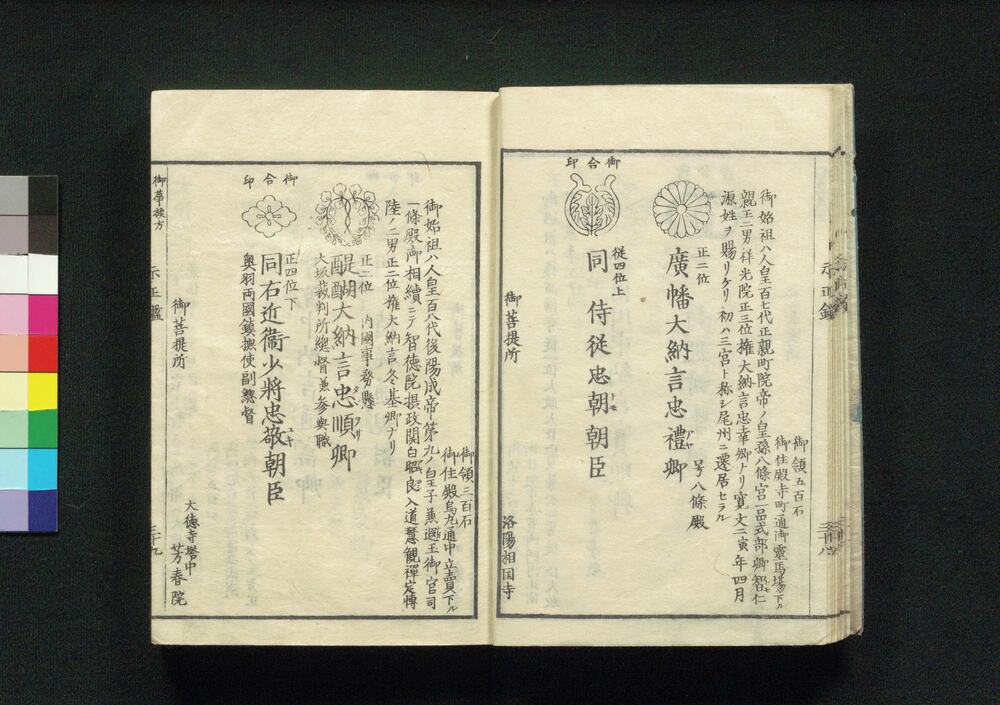 御領五百石
御住殿寺町通御霊馬場下ル
御始祖ハ人皇百七代正親町院帝ノ皇孫八條宮一品式部卿智仁
親王二男祥光院正三位権大納言忠幸卿ナリ寛文二寅年四月
源姓ヲ賜リケリ初ハ三宮ト称シ尾州ニ還居セラル
正二位
廣幡大納言忠禮卿
号八條殿
御合印
従四位上
同侍従忠朝朝臣
御菩提所
洛陽相国寺
御領三百石
御住殿烏丸通中立賣下ル
御始祖ハ人皇百八代後陽成帝第九ノ皇子兼遐王御官司
一條殿御相續ニテ智徳院摂政関白昭良入道慧観禪定博
陸ノ二男正二位権大納言冬基卿ナリ
正二位
内國事務懸
醍醐大納言忠順卿
大坂裁判所總督兼参與職
御合印
正四位下
同右近衞少將忠敬朝臣
奥羽両國鎮撫使副總督
御菩提所
大徳寺塔中
芳春院
御華族方
示正鑑
三十九